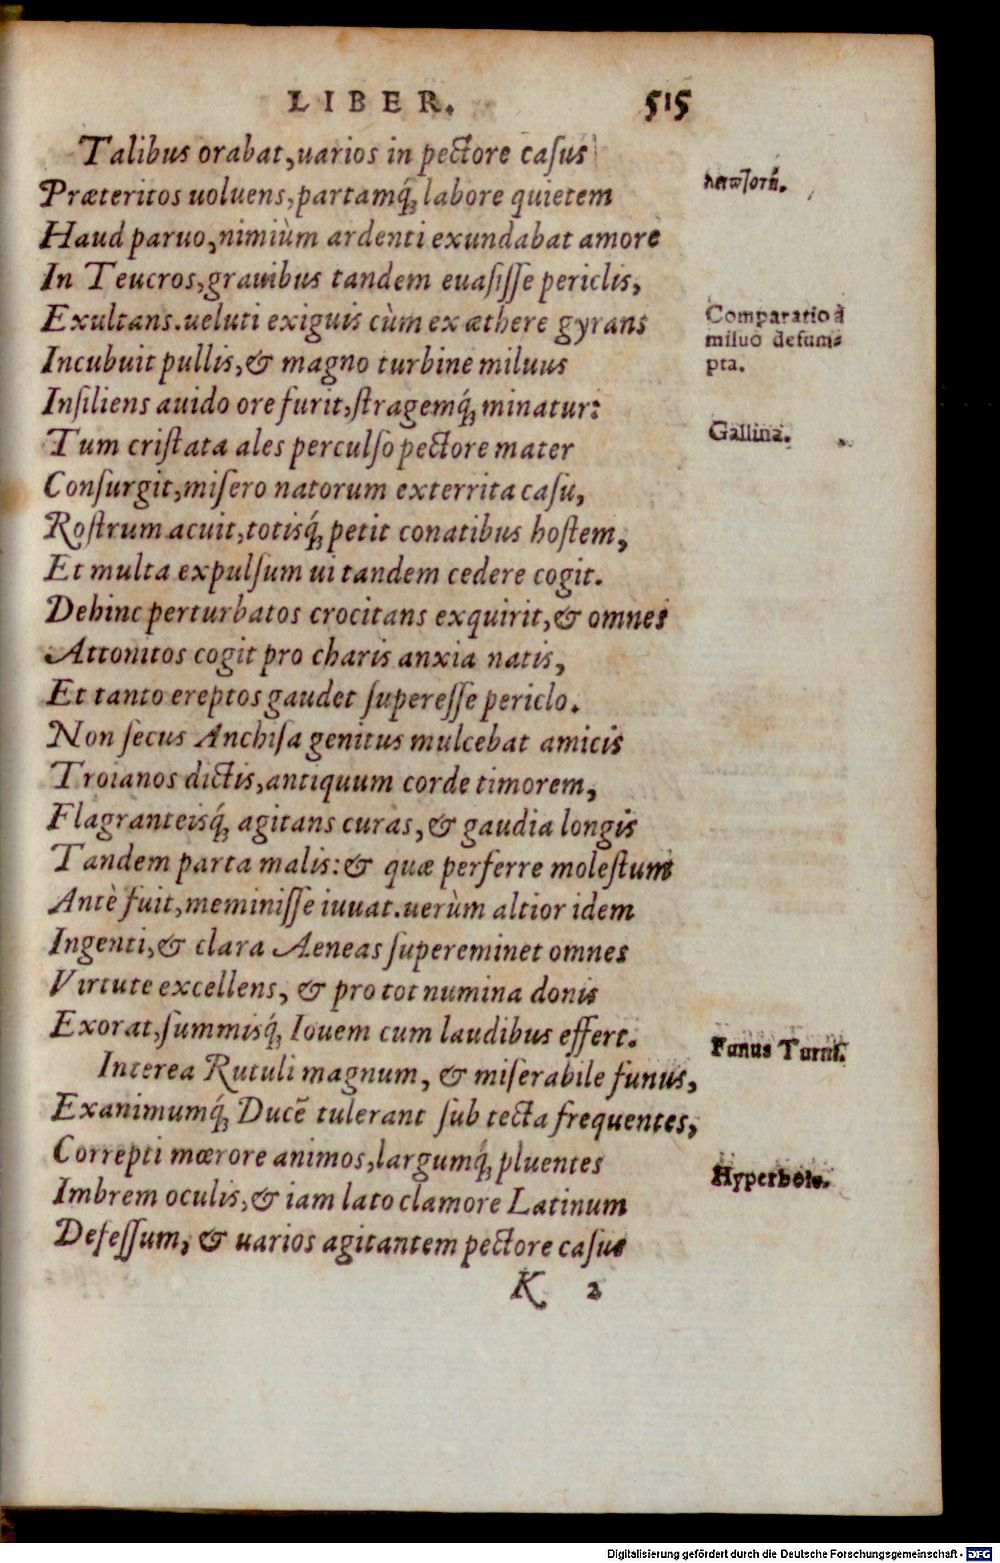 LIBER. 515
Talibus orabat, uarios in pectore casus
Præteritos uoluens, partamq́; labore quietem
Haud paruo, nimiùm ardenti exundabat amore
In Teucros, grauibus tandem euasisse periclis,
Exultans. ueluti exiguis cùm ex æthere gyrans
Comparatio à
miluo desum-
pta.
Incubuit pullis, & magno turbine miluus
Insiliens auido ore furit, stragemq́; minatur:
Tum cristata ales perculso pectore mater
Gallina.
Consurgit, misero natorum exterrita casu,
Rostrum acuit, totisq́; petit conatibus hostem,
Et multa expulsum ui tandem cedere cogit.
Dehinc perturbatos crocitans exquirit, & omnes
Attonitos cogit pro charis anxia natis,
Et tanto ereptos gaudet superesse periclo.
Non secus Anchisa genitus mulcebat amicis
Troianos dictis, antiquum corde timorem,
Flagranteisq́; agitans curas, & gaudia longis
Tandem parta malis: & quæ perferre molestum
Antè fuit, meminisse iuuat. uerùm altior idem
Ingenti, & clara Aeneas supereminet omnes
Virtute excellens, & pro tot numina donis
Exorat, summisq́; Iouem cum laudibus effert.
Interea Rutuli magnum, & miserabile funus,
Funus Turni.
Exanimumq́; Ducē tulerant sub tecta frequentes,
Correpti mœrore animos, largumq́; pluentes
Hyperbole.
Imbrem oculis, & iam lato clamore Latinum
Defessum, & uarios agitantem pectore casus
K 2
Digitalisierung gefördert durch die Deutsche Forschungsgemeinschaft - DFG